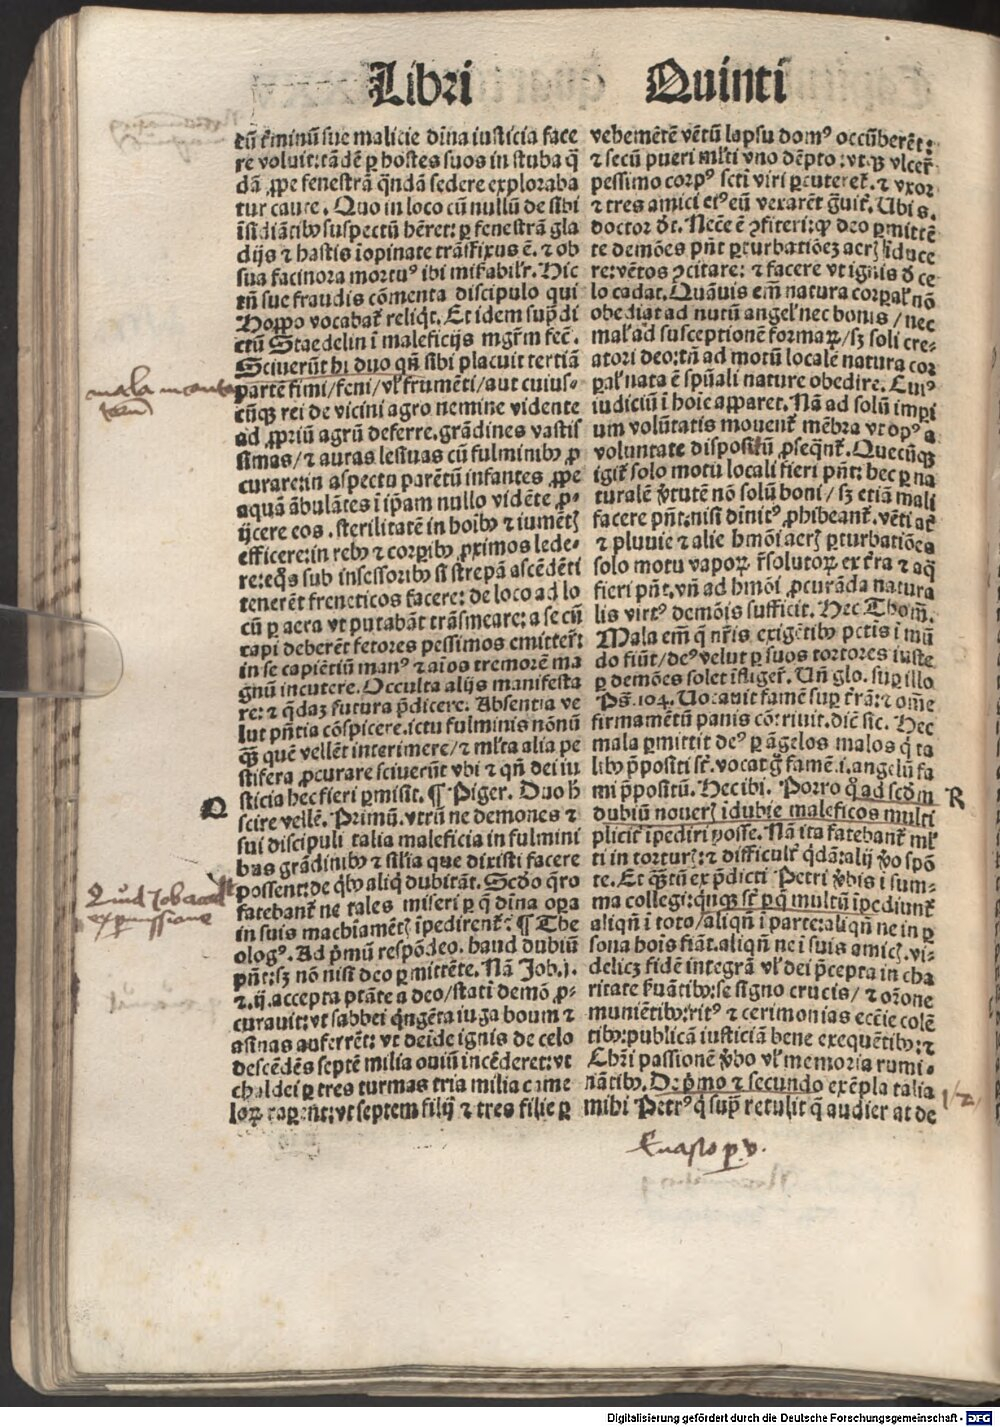 Libri Quinti
cū t̓minū sue malicie dīna iusticia face
re voluit: tādē ꝑ hostes suos in stuba q̄
dā ꝓpe fenestrā q̄ndā sedere exploraba
tur caute. Quo in loco cū nullū de sibi
īsidiātibꝰ suspectū hēret: ꝑ fenestrā gla
dijs ⁊ hastis īopinate trāsfixus ē. ⁊ ob
sua facinora mortuꝰ ibi mirabilr̓. Hic
tn̄ sue fraudis cōmenta discipulo qui
Hoppo vocabat̓ reliq̇t. Et idem sup̄di
ctū Staedelin ī maleficijs mgr̄m fec̄.
Sciuerūt hi duo qn̄ sibi placuit tertiā
partē fimi/feni/vl̓ frumēti/aut cuius⸗
cūqꝫ rei de vicini agro nemine vidente
ad ꝓpriū agrū deferre. grādines vastis
simas/⁊ auras lesiuas cū fulminibꝰ ꝓ
curare: in aspectu parētū infantes ꝓpe
aquā ābulātes ī ip̄am nullo vidēte ꝓ⸗
ijcere eos. sterilitatē in hoībꝰ ⁊ iumētꝭ
efficere: in rebꝰ ⁊ corꝑibꝰ ꝓximos lede⸗
re: eq̊s sub insessoribꝰ si strepā ascēdēti
tenerēt freneticos facere: de loco ad lo
cū ꝑ aera vt putabāt trāsmeare: a se cū
capi deberēt fetores pessimos emitter̄:
in se capiētiū manꝰ ⁊ aīos tremorē ma
gnū incutere. Occulta alijs manifesta
re: ⁊ q̄daꝫ futura p̄dicere. Absentia ve
lut pn̄tia cōspicere. ictu fulminis nōnū
qꝫ quē vellēt interimere/⁊ ml̓ta alia pe
stifera ꝓcurare sciuerūt vbi ⁊ qn̄ dei iu
Q sticia hec fieri ꝑmisit. ¶ Piger. Duo h̄
scire vellē. Primū. vtrū ne demones ⁊
sui discipuli talia maleficia in fulmini
bus grādinibꝰ ⁊ sīlia que dixisti facere
possent: de q̇bꝰ aliq̇ dubitāt. Scd̓o q̄ro
fatebant̓ ne tales miseri ꝑ q̄ dīna oꝑa
in suis machīamētꝭ īpedirent̓. ¶ The
ologꝰ. Ad p̓mū respōdeo. haud dubiū
pn̄t: sꝫ nō nisi deo ꝑmittēte. Nā Job .j.
⁊ .ij. accepta ptāte a deo/stati demō ꝓ⸗
curauit: vt sabbei q̇ngēta iuga boum ⁊
asinas auferrēt: vt deīde ignis de celo
descēdēs septē milia ouiū incēderet: vt
chaldei ꝑ tres turmas tria milia came
loꝝ raꝑent: vt septem filij ⁊ tres filie ꝑ
vehemētē vētū lapsu domꝰ occūberēt:
⁊ secū pueri ml̓ti vno dēpto: vtqꝫ vlcer̄
pessimo corpꝰ scti viri ꝑcuteret̓. ⁊ vxor
⁊ tres amici eiꝰ eū vexarēt g̓uit̓. Ubi s.
doctor d̓t. Necē ē ꝯfiteri: ꝙ deo ꝑmittē
te demōes pn̄t ꝑturbatiōeꝫ aerꝭ īduce
re: vētos ꝯcitare: ⁊ facere vt ignis d̓ ce
lo cadat. Quāuis em̄ natura corꝑal̓ nō
obediat ad nutū angel̓ nec bonis/nec
mal̓ ad susceptionē formaꝝ/sꝫ soli cre⸗
atori deo: tn̄ ad motū localē natura cor
ꝑal̓ nata ē spūali nature obedire. Cuiꝰ
iudiciū ī hoīe apparet. Nā ad solū impi
um volūtatis mouent̓ mēbra vt opꝰ a
voluntate dispositū ꝓseq̄nt̓. Quecūqꝫ
igit̓ solo motu locali fieri pn̄t: hec ꝑ na
turalē v̓tutē nō solū boni/sꝫ etiā mali
facere pn̄t: nisi dīnitꝰ ꝓhibeant̓. vēti at̓
⁊ pluuie ⁊ alie hmōi aerꝭ ꝑturbatiōes
solo motu vapoꝝ r̄solutoꝝ ex t̓ra ⁊ aq̄
fieri pn̄t. vn̄ ad hmōi ꝓcurāda natura
lis virtꝰ demōis sufficit. Hec Thom̄.
Mala em̄ q̄ nr̄is exigētibꝰ pctīs ī mū
do fiūt/deꝰ velut ꝑ suos tortores iuste
ꝑ demōes solet īfliger̄. Un̄ glo. suꝑ illo
Ps̄. 104. Uocauit famē suꝑ t̓rā: ⁊ om̄e
firmamētū panis cōtriuit. dic̄ sic. Hec
mala ꝑmittit deꝰ ꝑ āgelos malos q̇ ta
libꝰ p̄positi sr̄. vocat g̓ famē .i. angelū fa
mi p̄positū. Hec ibi. Porro q̊ ad scd̓m R
dubiū nouerꝭ īdubie maleficos multi
plicit̓ īpediri posse. Nā ita fatebant̓ ml̓
ti in torturꝭ: ⁊ difficult̓ q̇dā: alij v̓o spō
te. Et qꝫtū ex p̄dicti Petri v̓bis ī sum⸗
ma collegi: quīqꝫ sr̄ ꝑ q̄ multū īpediunt̓
aliqn̄ ī toto/aliqn̄ ī parte: aliqn̄ ne in ꝑ
sona hoīs fiāt. aliqn̄ ne ī suis amicꝭ. vi⸗
delicꝫ fidē integrā vl̓ dei p̄cepta in cha
ritate s̓uātibꝰ: se signo crucis/⁊ or̄one
muniētibꝰ: ritꝰ ⁊ cerimonias ecc̄ie colē
tibꝰ: publicā iusticiā bene exequētibꝰ: ⁊
Chr̄i passionē v̓bo vl̓ memoria rumi⸗
nātibꝰ. De p̓mo ⁊ secundo exēpla talia
mihi Petrꝰ q̇ sup̄ retulit q̄ audierat de
mala incanta
tem̄
Quid Job
ex permissione